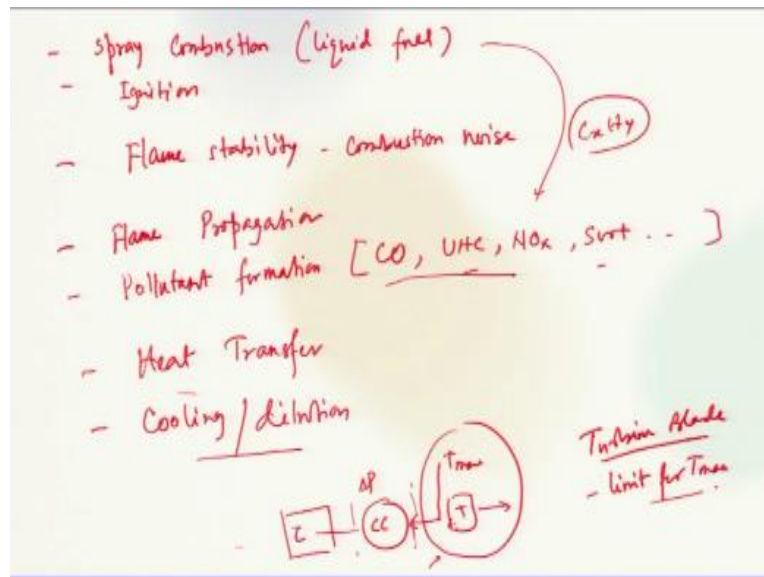 - Spray Combustion (liquid fuel)
- Ignition
- Flame stability - Combustion noise
CxHy
- Flame Propagation
- Pollutant formation [CO, UHC, NOx, Soot .. ]
- Heat Transfer
- Cooling / dilution
Turbine Blade
- limit for Tmax
ΔP
Tmax
C
CC
T